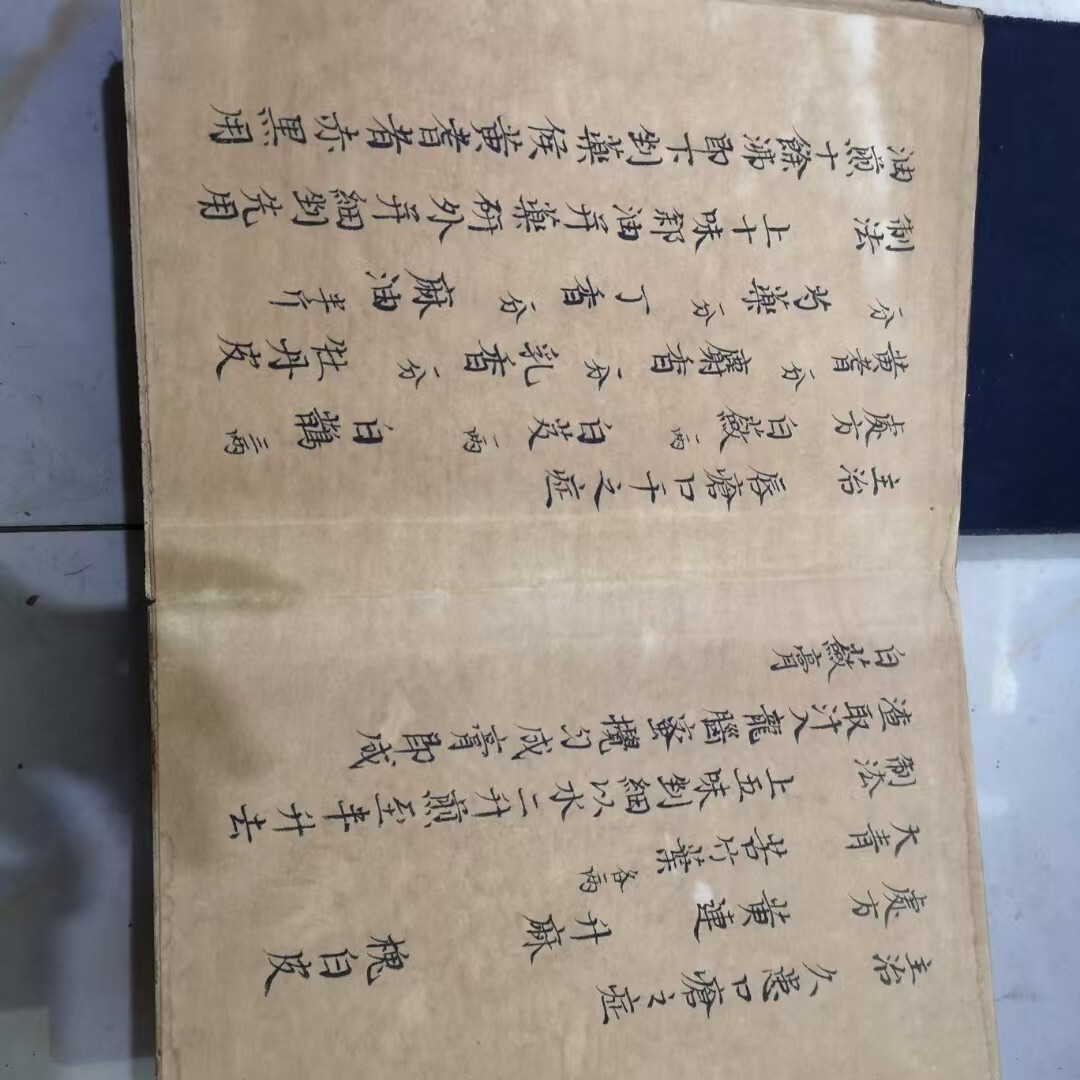 主治 久患口瘡之症
處方 黃連 升麻 槐白皮
大青 苦竹葉 各一兩
制法 上五味剉細以水二升煎至半升去
渣取汁入龍腦蜜攪勻成膏即成
白蘞膏
主治 唇瘡口干之症
處方 白蘞 一兩 白芨 一兩 白 三兩
黃耆 一分 麝香 一分 乳香 一分 牡丹皮
一分 芍藥 一分 丁香 一分 麻油 半斤
制法 上十味油弄藥研外弄細剉先用
油煎十餘沸即下剉藥候黃耆者赤黑用